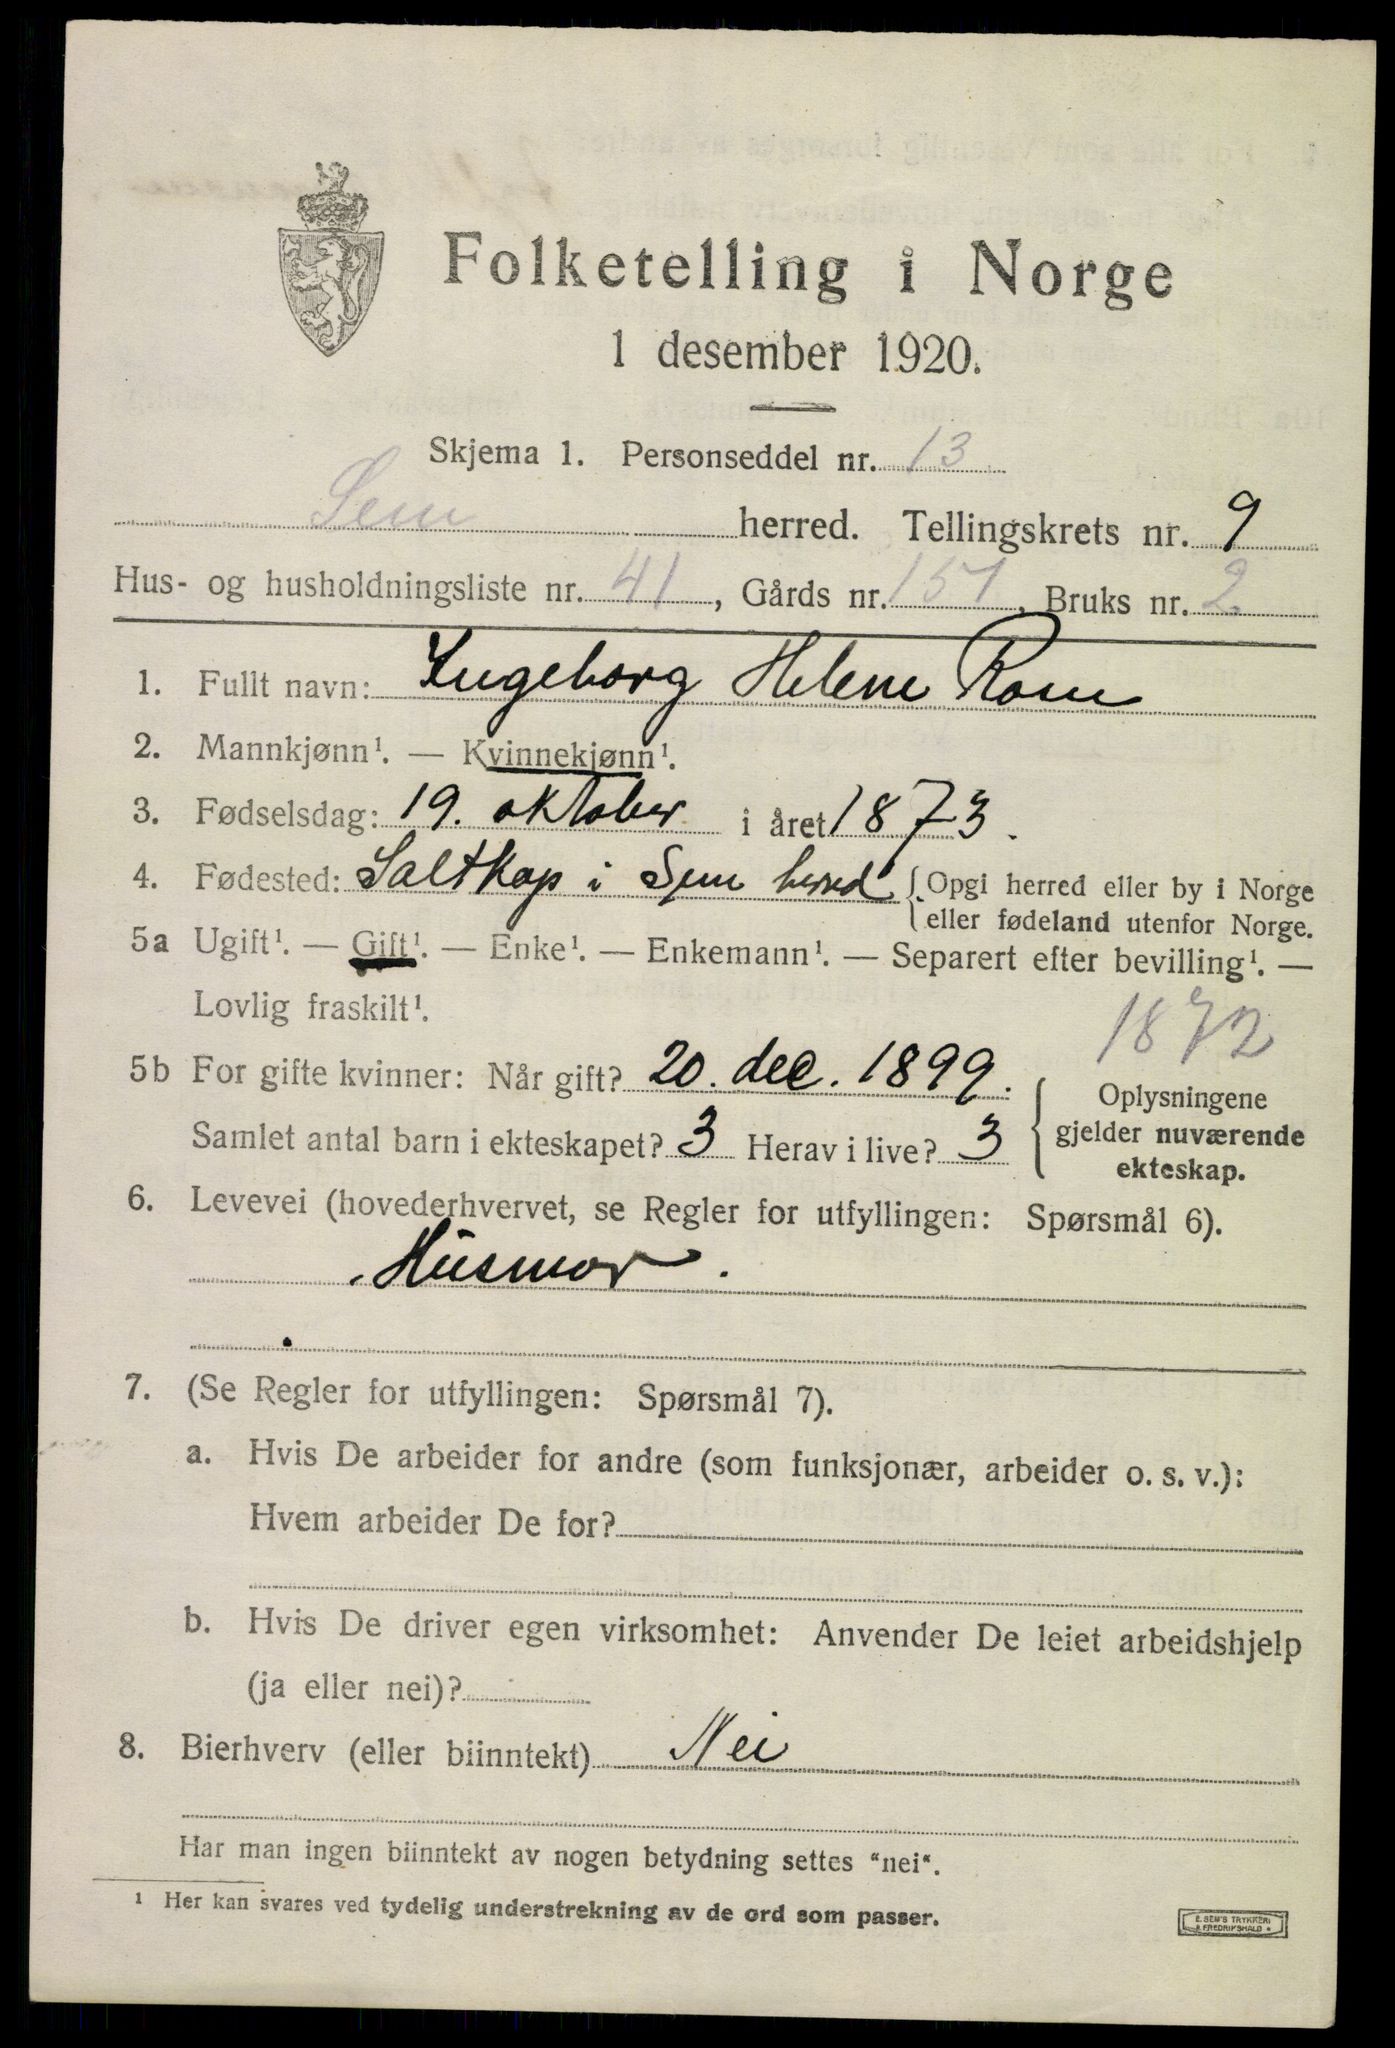 Folketelling i Norge
1 desember 1920.
Skjema 1. Personseddel nr. 13
Sem herred. Tellingskrets nr. 9
Hus- og husholdningsliste nr. 41, Gårds nr. 151, Bruks nr. 2
1. Fullt navn: Ingeborg Helene Rom
2. Mannkjønn¹. — Kvinnekjønn¹.
3. Fødselsdag: 19. oktober i året 1873.
4. Fødested: Saltkop i Sem herred { Opgi herred eller by i Norge
eller fødeland utenfor Norge.
5a Ugift¹. — Gift¹. — Enke¹. — Enkemann¹. — Separert efter bevilling¹. —
Lovlig fraskilt¹.
1872
5b For gifte kvinner: Når gift? 20. dec. 1899.
Samlet antal barn i ekteskapet? 3 Herav i live? 3
{ Oplysningene
gjelder nuværende
ekteskap.
6. Levevei (hovederhvervet, se Regler for utfyllingen: Spørsmål 6).
Husmor.
7. (Se Regler for utfyllingen: Spørsmål 7).
a. Hvis De arbeider for andre (som funksjonær, arbeider o. s. v.):
Hvem arbeider De for?
b. Hvis De driver egen virksomhet: Anvender De leiet arbeidshjelp
(ja eller nei)?
8. Bierhverv (eller biinntekt) Nei
Har man ingen biinntekt av nogen betydning settes "nei".
¹ Her kan svares ved tydelig understrekning av de ord som passer.
E. SEM'S TRYKKERI
FREDRIKSHALD